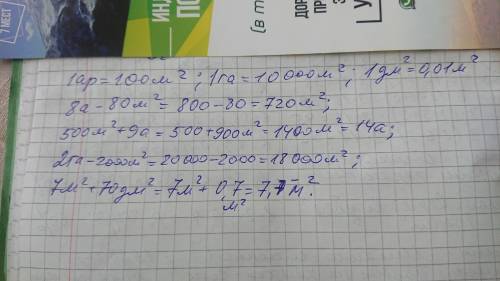 7 МЕСТ
ИН
ПО
(в т
ДОР
ПР
З
У
1ар=100м²; 1га=10000м²; 1дм²=0,01м²
8а-80м²=800-80=720м²;
500м²+9а=500+900м²=1400м²=14а;
2га-2000м²=20000-2000=18000м²;
7м²+70дм²=7м²+0,7=7,7м².
м²